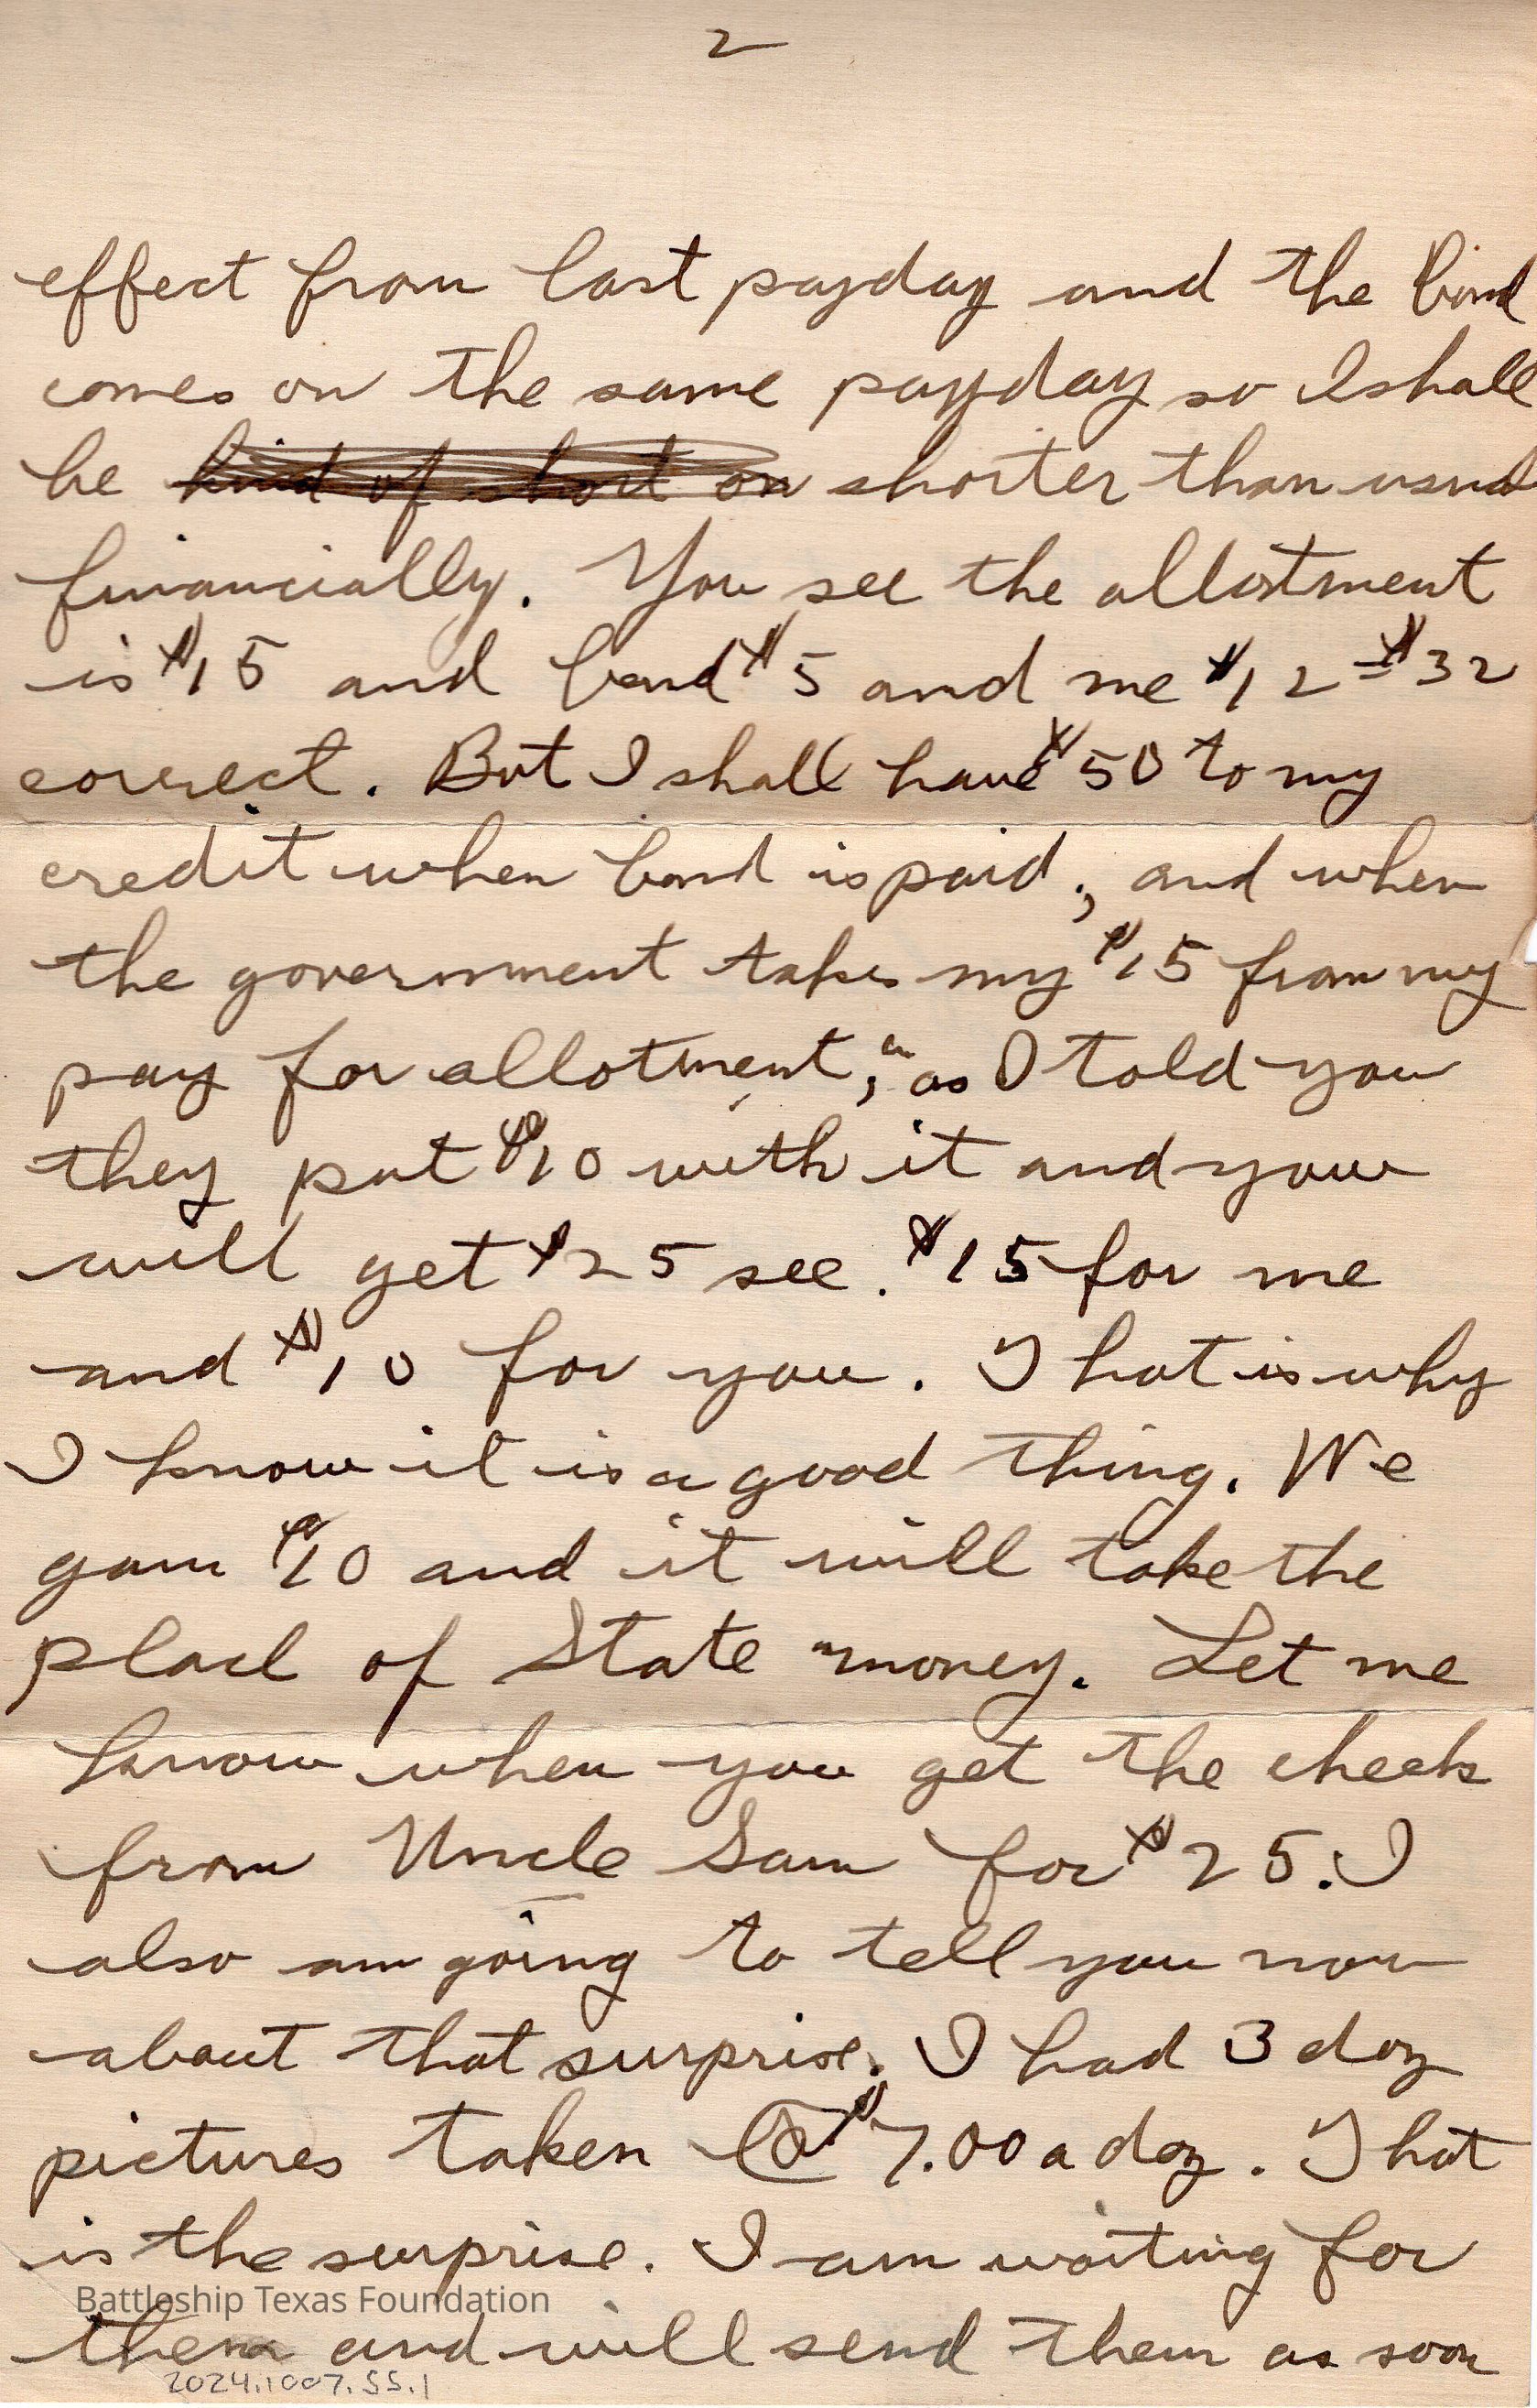 2
effect from last payday and the bond
comes on the same payday so I shall
be kind of short on shorter than usual
financially. You see the allotment
is $15 and bond $5 and me $12 = $32
correct. But I shall have $50 to my
credit when bond is paid, and when
the government takes my $15 from my
pay for allotment, as I told you
they put $10 with it and you
will get $25 see. $15 for me
and $10 for you. That is why
I know it is a good thing. We
gain $10 and it will take the
place of State money. Let me
know when you get the check
from Uncle Sam for $25. I
also am going to tell you now
about that surprise. I had 3 doz
pictures taken @ $7.00 a doz. That
is the surprise. I am waiting for
Battleship Texas Foundation
them and will send them as soon
2024.1007.55.1